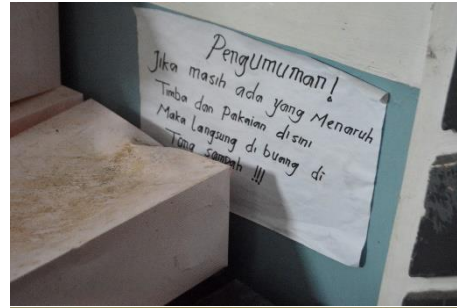 Pengumuman!
Jika masih ada yang Menaruh
Timba dan Pakaian disini
Maka Langsung di buang di
Tong sampah !!!